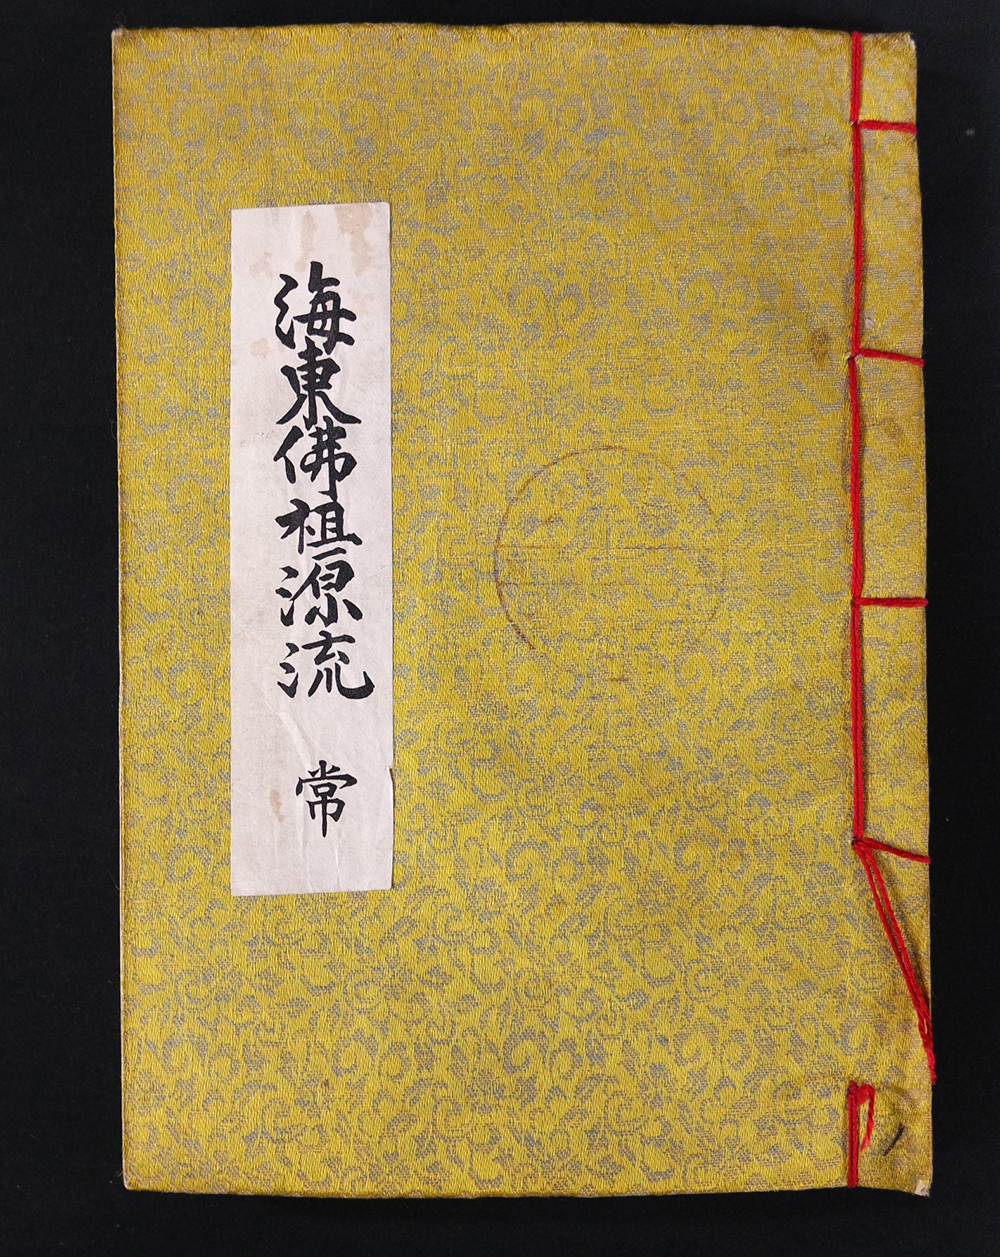 海東佛祖源流 常